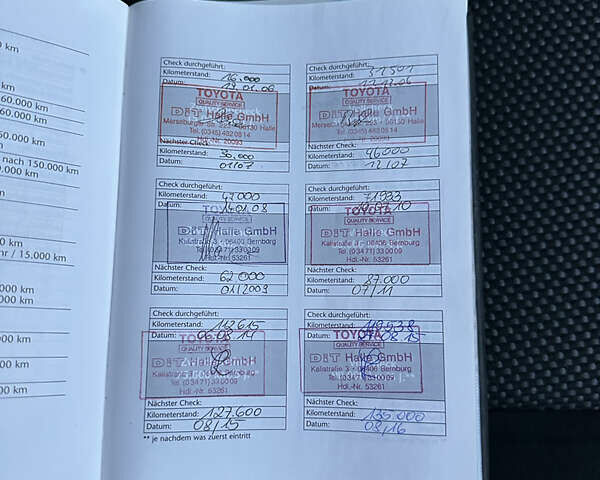 0 km
60.000 km
60.000 km
nach 150.000 km
0.000 km
hr / 15.000 km
km
km
Check durchgeführt:
Kilometerstand: 16.000
Datum: 19.01.06
TOYOTA
QUALITY SERVICE
DiT Halle GmbH
06130 Halle
Tel. (0345) 482 08 14
Hdl.-Nr. 20093
Nächster Check:
Kilometerstand: 30.000
Datum: 01/07
Check durchgeführt:
Kilometerstand: 31501
Datum: 12.12.06
TOYOTA
QUALITY SERVICE
DiT Halle GmbH
06130 Halle
Tel. (0345) 482 08 14
20093
Nächster Check:
Kilometerstand: 46000
Datum: 12/07
Check durchgeführt:
Kilometerstand: 47000
Datum: 14.01.08
QUALITY SERVICE
DiT Halle GmbH
Kalistraße 3 • 06406 Bernburg
Tel. (03471) 33 00 09
Hdl.-Nr. 53261
Nächster Check:
Kilometerstand: 62000
Datum: 01/2009
Check durchgeführt:
Kilometerstand: 71933
Datum:
TOYOTA
QUALITY SERVICE
DiT Halle GmbH
Kalistraße 3 • 06406 Bernburg
Tel. (03471) 33 00 09
Hdl.-Nr. 53261
Nächster Check:
Kilometerstand: 87.000
Datum: 07/11
Check durchgeführt:
Kilometerstand: 112615
Datum: 06.08.14
TOYOTA
QUALITY SERVICE
DiT Halle GmbH
Kalistraße 3 • 06406 Bernburg
Tel. (03471) 33 00 09
Hdl.-Nr. 53261
Nächster Check:
Kilometerstand: 127.600
Datum: 08/15
Check durchgeführt:
Kilometerstand: 119938
Datum: 08.15
TOYOTA
QUALITY SERVICE
DiT Halle GmbH
Kalistraße 3 • 06406 Bernburg
Tel. (03471) 33 00 09
Hdl.-Nr. 53261
Nächster Check:
Kilometerstand: 135.000
Datum: 08/16
** je nachdem was zuerst eintritt